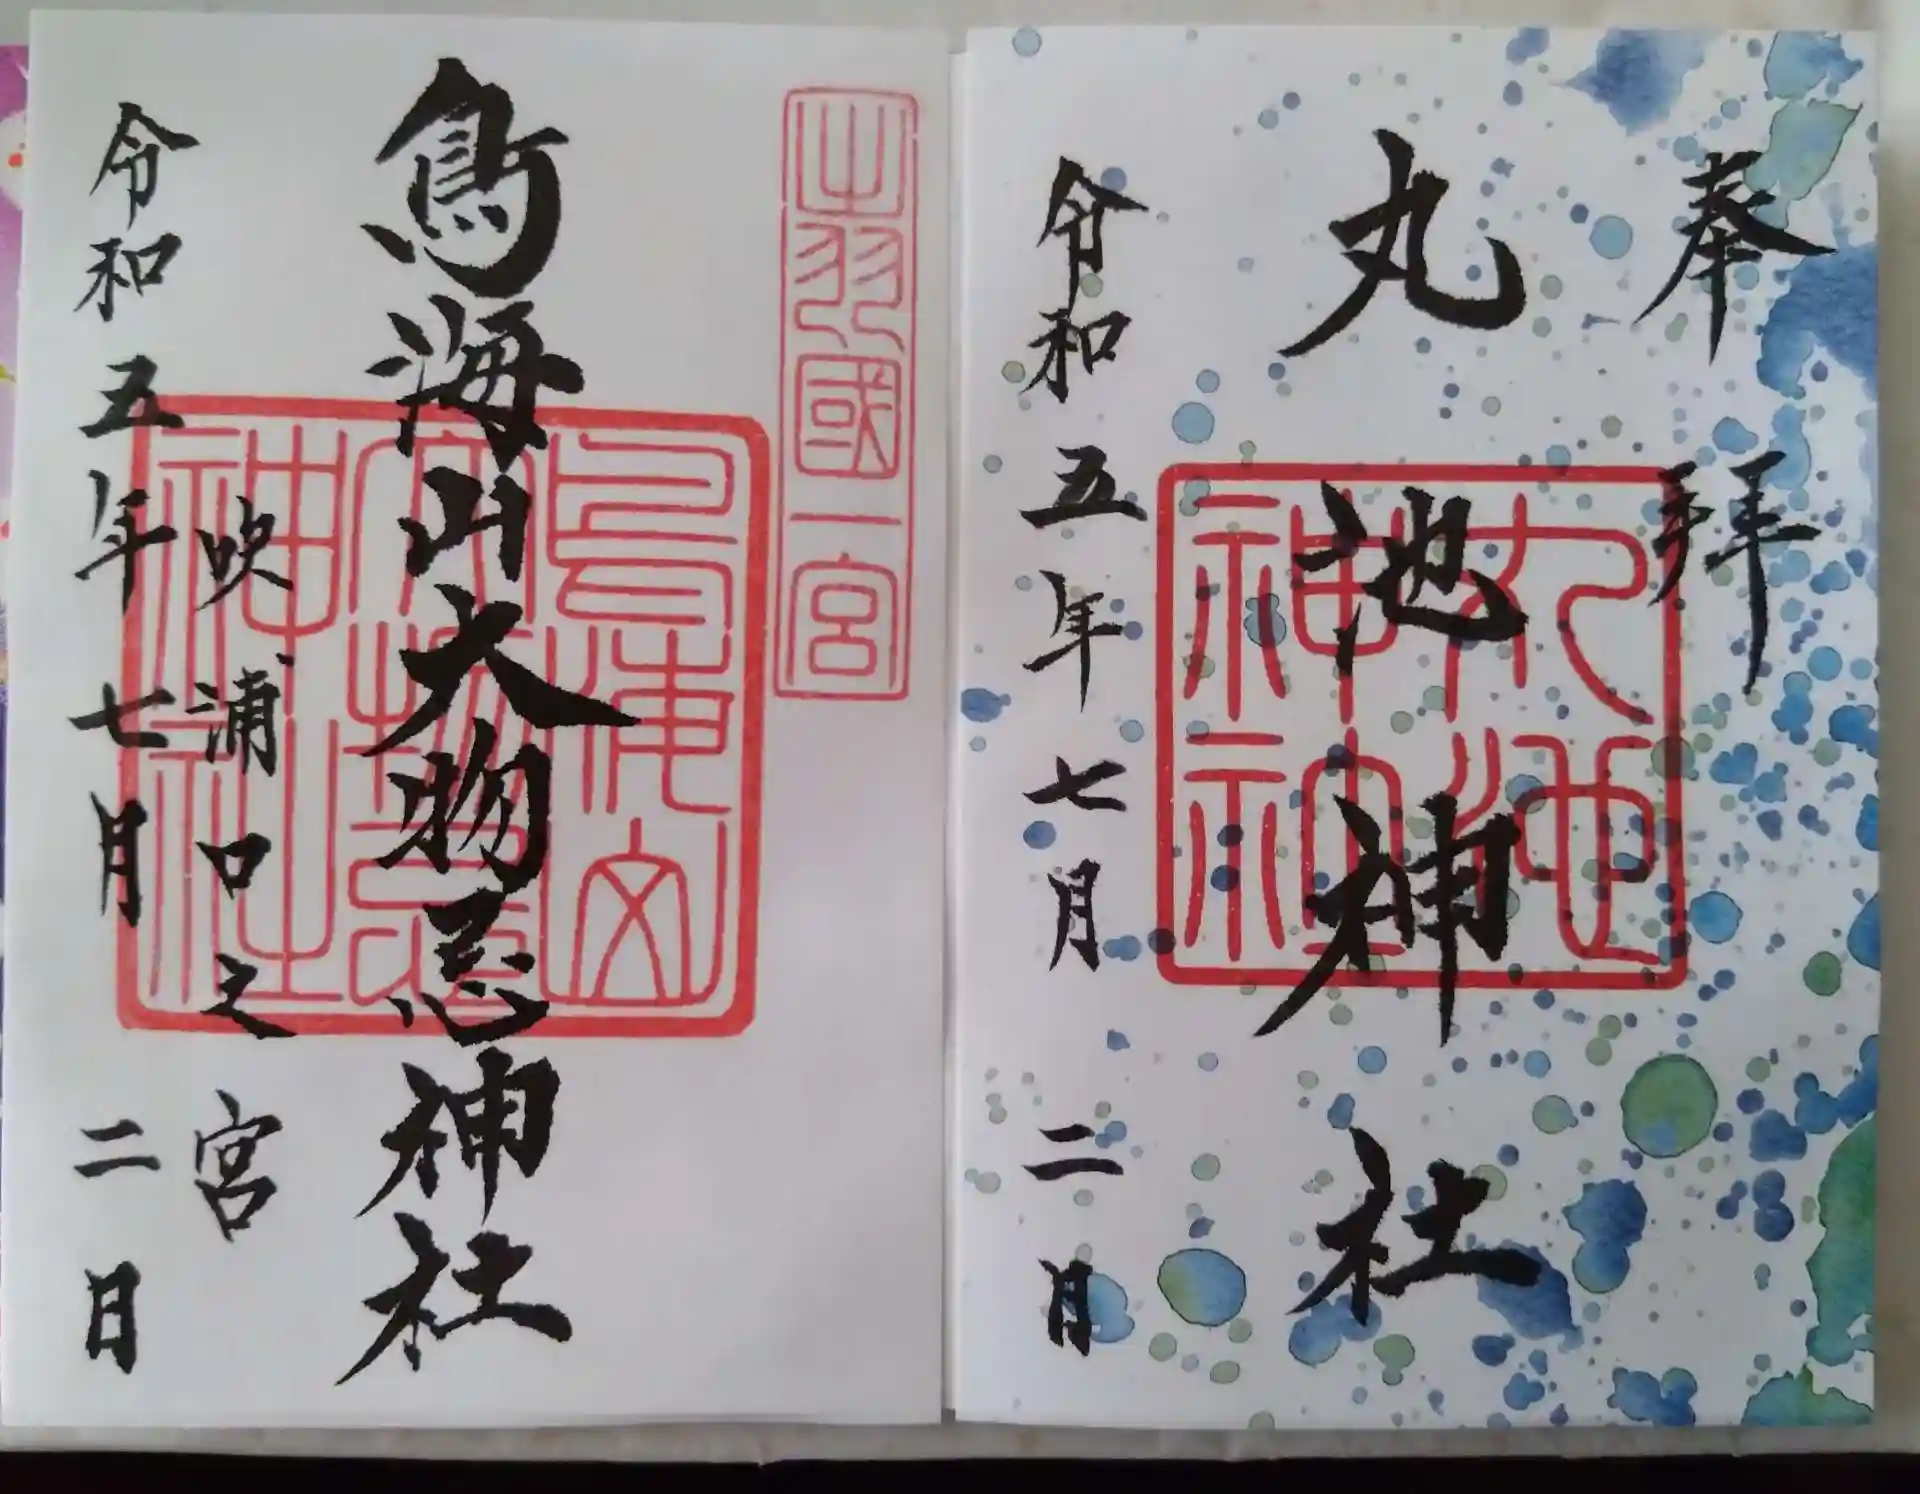 奉拝
丸池神社
令和五年七月二日
丸池
神社
出羽國一宮
鳥海山大物忌神社
吹浦口之宮
令和五年七月二日